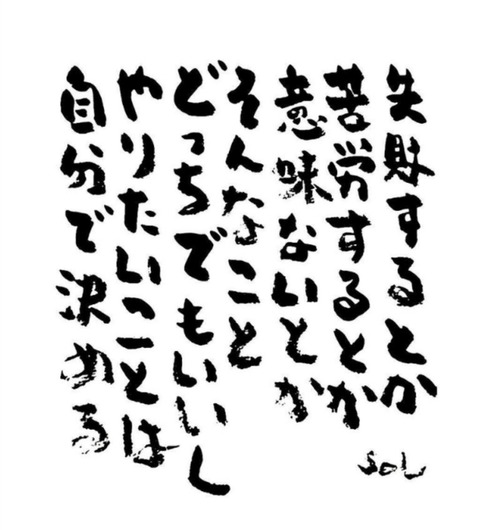 失敗するとか
苦労するとか
意味ないとか
そんなこと
どっちでもいいし
やりたいことは
自分で決める
SOL